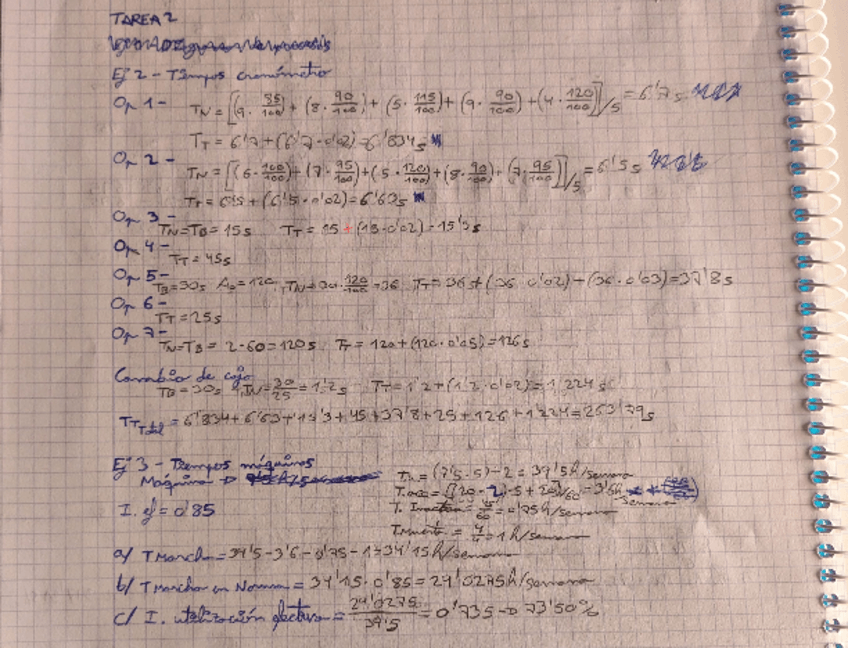 TAREA 2
Ej 2 - Tiempos cronómetro
Op 1 - TN = [(9 · 95/100) + (8 · 90/100) + (5 · 115/100) + (9 · 90/100) + (4 · 120/100)]/5 = 6'7s
TT = 6'7 + (6'7 · 0'02) = 6'834s
Op 2 - TN = [(6 · 100/100) + (7 · 95/100) + (5 · 120/100) + (8 · 90/100) + (7 · 95/100)]/5 = 6'5s
TT = 6'5 + (6'5 · 0'02) = 6'63s
Op 3 - TN = TB = 15s TT = 15 + (15 · 0'02) = 15'3s
Op 4 - TT = 45s
Op 5 - TB = 30s A0 = 120 TN = 30 · 120/100 = 36 TT = 36 + (36 · 0'02) + (36 · 0'03) = 37'8s
Op 6 - TT = 25s
Op 7 - TN = TB = 2 · 60 = 120s TT = 120 + (120 · 0'05) = 126s
Cambio de caja
TB = 30s TN = 30/25 = 1'2s TT = 1'2 + (1'2 · 0'02) = 1'224s
TT Total = 6'834 + 6'63 + 15'3 + 45 + 37'8 + 25 + 126 + 1'224 = 263'79s
Ej 3 - Tiempos máquinas
Máquina →
(7'5 · 5) + 2 = 39'5h/semana
= 3'6h semana
I. ef = 0'85
T. Inactivo = /60 = 0'75h/semana
T. Muerto = = 1h/semana
a/ T Marcha = 39'5 - 3'6 - 0'75 - 1 = 34'15h/semana
b/ T Marcha en Norma = 34'15 · 0'85 = 29'0275h/semana
c/ I. utilización efectiva = 29'0275/39'5 = 0'735 → 73'50%